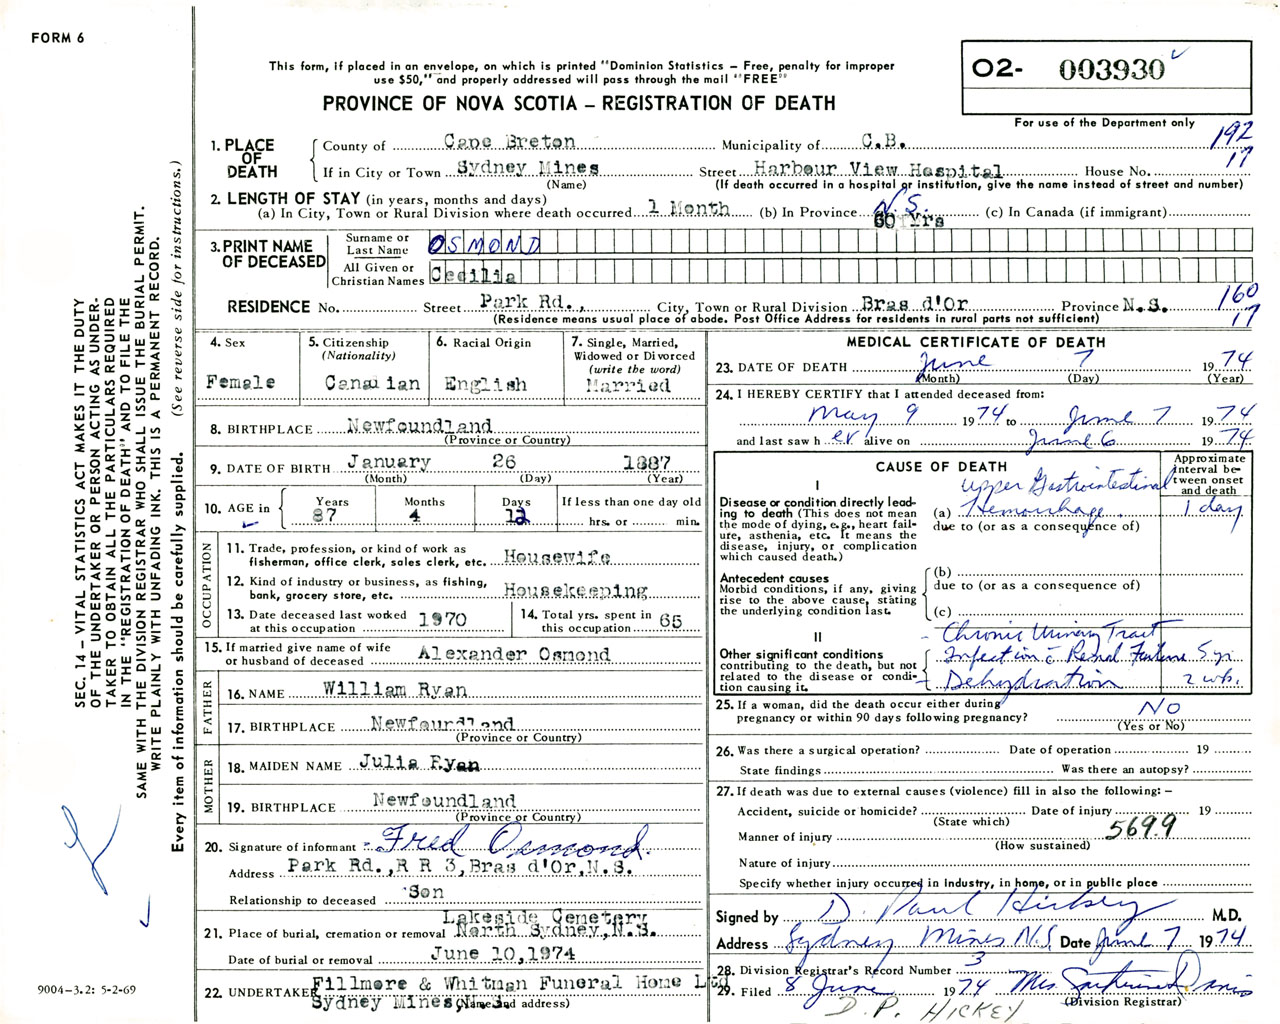 FORM 6
This form, if placed in an envelope, on which is printed "Dominion Statistics – Free, penalty for improper
use $50," and properly addressed will pass through the mail "FREE"
PROVINCE OF NOVA SCOTIA – REGISTRATION OF DEATH
02- 003930
For use of the Department only
192
17
1. PLACE OF DEATH
County of Cape Breton Municipality of C.B.
If in City or Town Sydney Mines Street Harbour View Hospital House No.
(Name) (If death occurred in a hospital or institution, give the name instead of street and number)
2. LENGTH OF STAY (in years, months and days)
(a) In City, Town or Rural Division where death occurred 1 Month (b) In Province N.S. 60 Yrs (c) In Canada (if immigrant)
3. PRINT NAME OF DECEASED
Surname or Last Name OSMOND
All Given or Christian Names Cecilia
RESIDENCE No. Street Park Rd., City, Town or Rural Division Bras d'Or Province N.S.
(Residence means usual place of abode. Post Office Address for residents in rural parts not sufficient)
160
17
4. Sex
Female
5. Citizenship
(Nationality)
Canadian
6. Racial Origin
English
7. Single, Married,
Widowed or Divorced
(write the word)
Married
8. BIRTHPLACE Newfoundland
(Province or Country)
9. DATE OF BIRTH January 26 1887
(Month) (Day) (Year)
10. AGE in
Years Months Days If less than one day old
87 4 12 hrs. or min.
OCCUPATION
11. Trade, profession, or kind of work as
fisherman, office clerk, sales clerk, etc. Housewife
12. Kind of industry or business, as fishing,
bank, grocery store, etc. Housekeeping
13. Date deceased last worked
at this occupation 1970
14. Total yrs. spent in
this occupation 65
15. If married give name of wife
or husband of deceased Alexander Osmond
FATHER
16. NAME William Ryan
17. BIRTHPLACE Newfoundland
(Province or Country)
MOTHER
18. MAIDEN NAME Julia Ryan
19. BIRTHPLACE Newfoundland
(Province or Country)
20. Signature of informant Fred Osmond.
Address Park Rd., R R 3, Bras d'Or, N.S.
Relationship to deceased Son
21. Place of burial, cremation or removal Lakeside Cemetery
North Sydney, N.S.
Date of burial or removal June 10, 1974
22. UNDERTAKER Fillmore & Whitman Funeral Home Ltd
Sydney Mines, N.S.
(Name and address)
MEDICAL CERTIFICATE OF DEATH
23. DATE OF DEATH June 7 1974
(Month) (Day) (Year)
24. I HEREBY CERTIFY that I attended deceased from:
May 9 1974 to June 7 1974
and last saw her alive on June 6 1974
CAUSE OF DEATH
Approximate interval between onset and death
I
Disease or condition directly leading to death (This does not mean the mode of dying, e.g., heart failure, asthenia, etc. It means the disease, injury, or complication which caused death.)
Upper Gastrointestinal
(a) Hemorrhage. 1 day
due to (or as a consequence of)
Antecedent causes
Morbid conditions, if any, giving rise to the above cause, stating the underlying condition last.
(b)
due to (or as a consequence of)
(c)
II
Other significant conditions
contributing to the death, but not related to the disease or condition causing it.
- Chronic Urinary Tract
Infection c̄ Renal Failure 5 yr.
- Dehydration 2 wks.
25. If a woman, did the death occur either during
pregnancy or within 90 days following pregnancy? NO
(Yes or No)
26. Was there a surgical operation? Date of operation 19
State findings Was there an autopsy?
27. If death was due to external causes (violence) fill in also the following: –
Accident, suicide or homicide? Date of injury 19
(State which)
5699
Manner of injury
(How sustained)
Nature of injury
Specify whether injury occurred in Industry, in home, or in public place
Signed by D. Paul Hickey M.D.
Address Sydney Mines N.S. Date June 7 1974
28. Division Registrar's Record Number 3
29. Filed 8 June 1974 Mrs Davis
(Division Registrar)
D.P. HICKEY
SEC. 14 – VITAL STATISTICS ACT MAKES IT THE DUTY
OF THE UNDERTAKER OR PERSON ACTING AS UNDER-
TAKER TO OBTAIN ALL THE PARTICULARS REQUIRED
IN THE "REGISTRATION OF DEATH" AND TO FILE THE
SAME WITH THE DIVISION REGISTRAR WHO SHALL ISSUE THE BURIAL PERMIT.
WRITE PLAINLY WITH UNFADING INK. THIS IS A PERMANENT RECORD.
Every item of information should be carefully supplied. (See reverse side for instructions.)
9004-3.2: 5-2-69